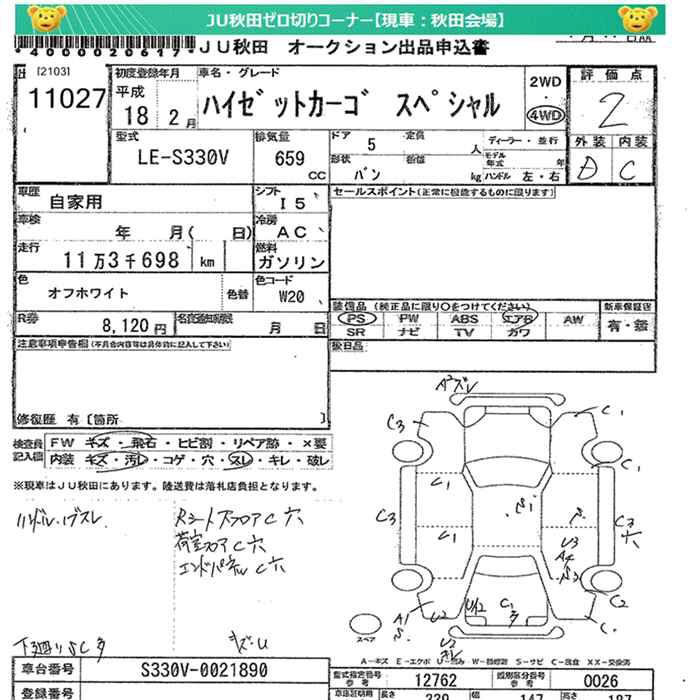 JU秋田ゼロ切りコーナー【現車：秋田会場】
*4000020617* JU秋田　オークション出品申込書
[2103]
11027
初度登録年月
平成
18 2月
車名・グレード
ハイゼットカーゴ　スペシャル
2WD
4WD
評価点
2
外装 内装
D C
型式
LE-S330V
排気量
659
CC
ドア
5
定員
人
形状
バン
kg
ディーラー・並行
モデル年式
年
ハンドル 左・右
車歴
自家用
シフト
I5
車検
年 月( 日)
冷房
AC
走行
11万3千698 km
燃料
ガソリン
色
オフホワイト
色替
色コード
W20
R券
8,120円
月 日
セールスポイント(正常に機能するものに限ります)
装備品(純正品に限り○をつけてください)
PS PW ABS エアB AW
SR ナビ TV カワ
新車保証書
有・無
注意事項申告欄(不具合内容等は具体的に記入して下さい)
修復歴 有〔箇所 〕
検査員記入欄
FW キズ・飛石・ヒビ割・リペア跡・×要
内装 キズ・汚レ・コゲ・穴・スレ・キレ・破レ
※現車はJU秋田にあります。陸送費は落札店負担となります。
RシートスフロアC穴
荷室フロアC穴
エンドパネルC穴
下廻りSC多
キズ・U
C3
C1
C1
C1
C1
C3
C3
穴
S1
S
U3
A4
S2
C2
C
A1
S
U2
U12
C1
多
U2
スペア
A-キズ E-エクボ U-凹み W-補修跡 S-サビ C-腐食 XX-交換済
車台番号
S330V-0021890
登録番号
型式指定番号
参考
12762
類別区分番号
参考
0026
長さ
339
幅
147
高さ
187